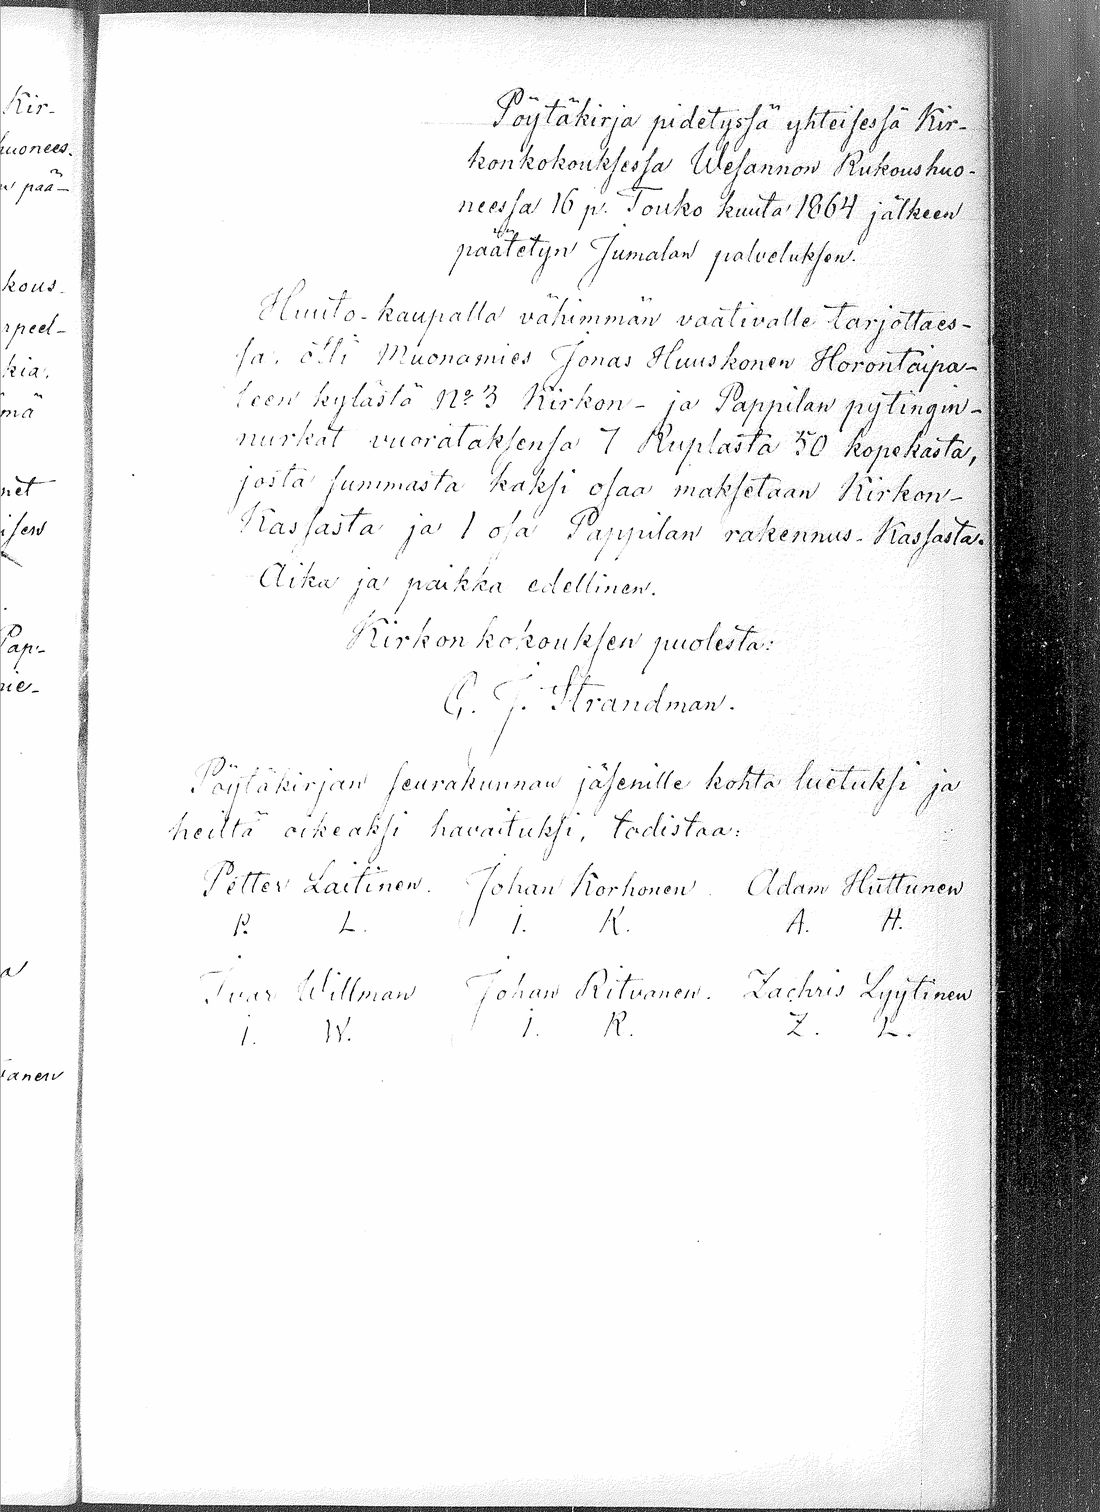 Kir-
huonees.
n pää-
kous-
rpeel-
kia.
mä
net
isen
Pap-
mie-
a
vanen
Pöytäkirja pidetyssä yhteisessä Kir-
konkokouksessa Wesannon Rukoushuo-
neessa 16 p. Touko kuuta 1864 jälkeen
päätetyn Jumalan palveluksen.
Huuto-kaupalla vähimmän vaativalle tarjottaes-
sa, otti Muonamies Jonas Huuskonen Horontaipa-
leen kylästä No 3 Kirkon- ja Pappilan pytingin-
nurkat vuorataksensa 7 Ruplasta 50 kopekasta,
josta summasta kaksi osaa maksetaan Kirkon-
Kassasta ja 1 osa Pappilan rakennus-Kassasta.
Aika ja paikka edellinen.
Kirkon kokouksen puolesta:
G. J. Strandman.
Pöytäkirjan seurakunnan jäsenille kohta luetuksi ja
heiltä oikeaksi havaituksi, todistaa:
Petter Laitinen. Johan Korhonen. Adam Huttunen
P. L. I. K. A. H.
Ivar Willman Johan Ritvanen. Zachris Lyytinen
I. W. I. R. Z. L.